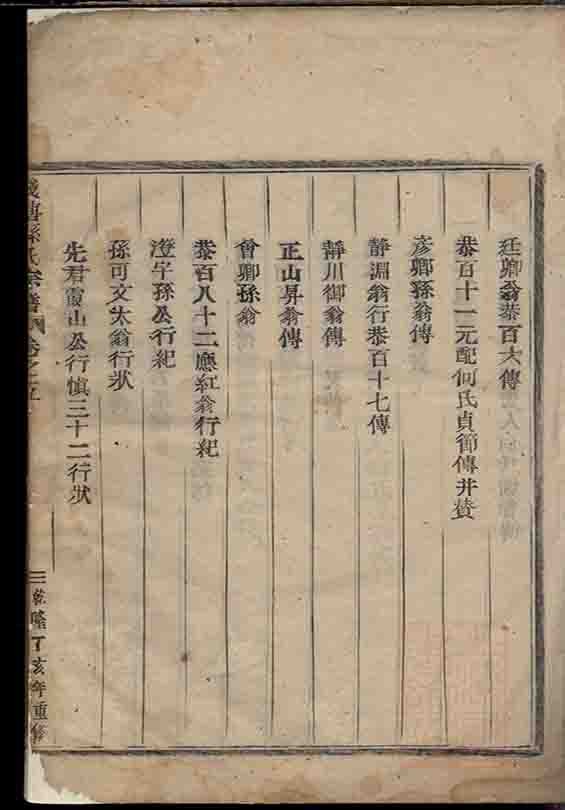 廷卿翁恭百六傳
恭百十一元配何氏貞節傳并贊
彥卿孫翁傳
靜淵翁行恭百十七傳
靜川御翁傳
正山昇翁傳
曾卿孫翁
恭百八十二應紅翁行紀
澄宇孫公行紀
孫可文太翁行狀
先君霞山公行慎三十二行狀
孫氏宗譜 卷之五
三 乾隆丁亥年重修